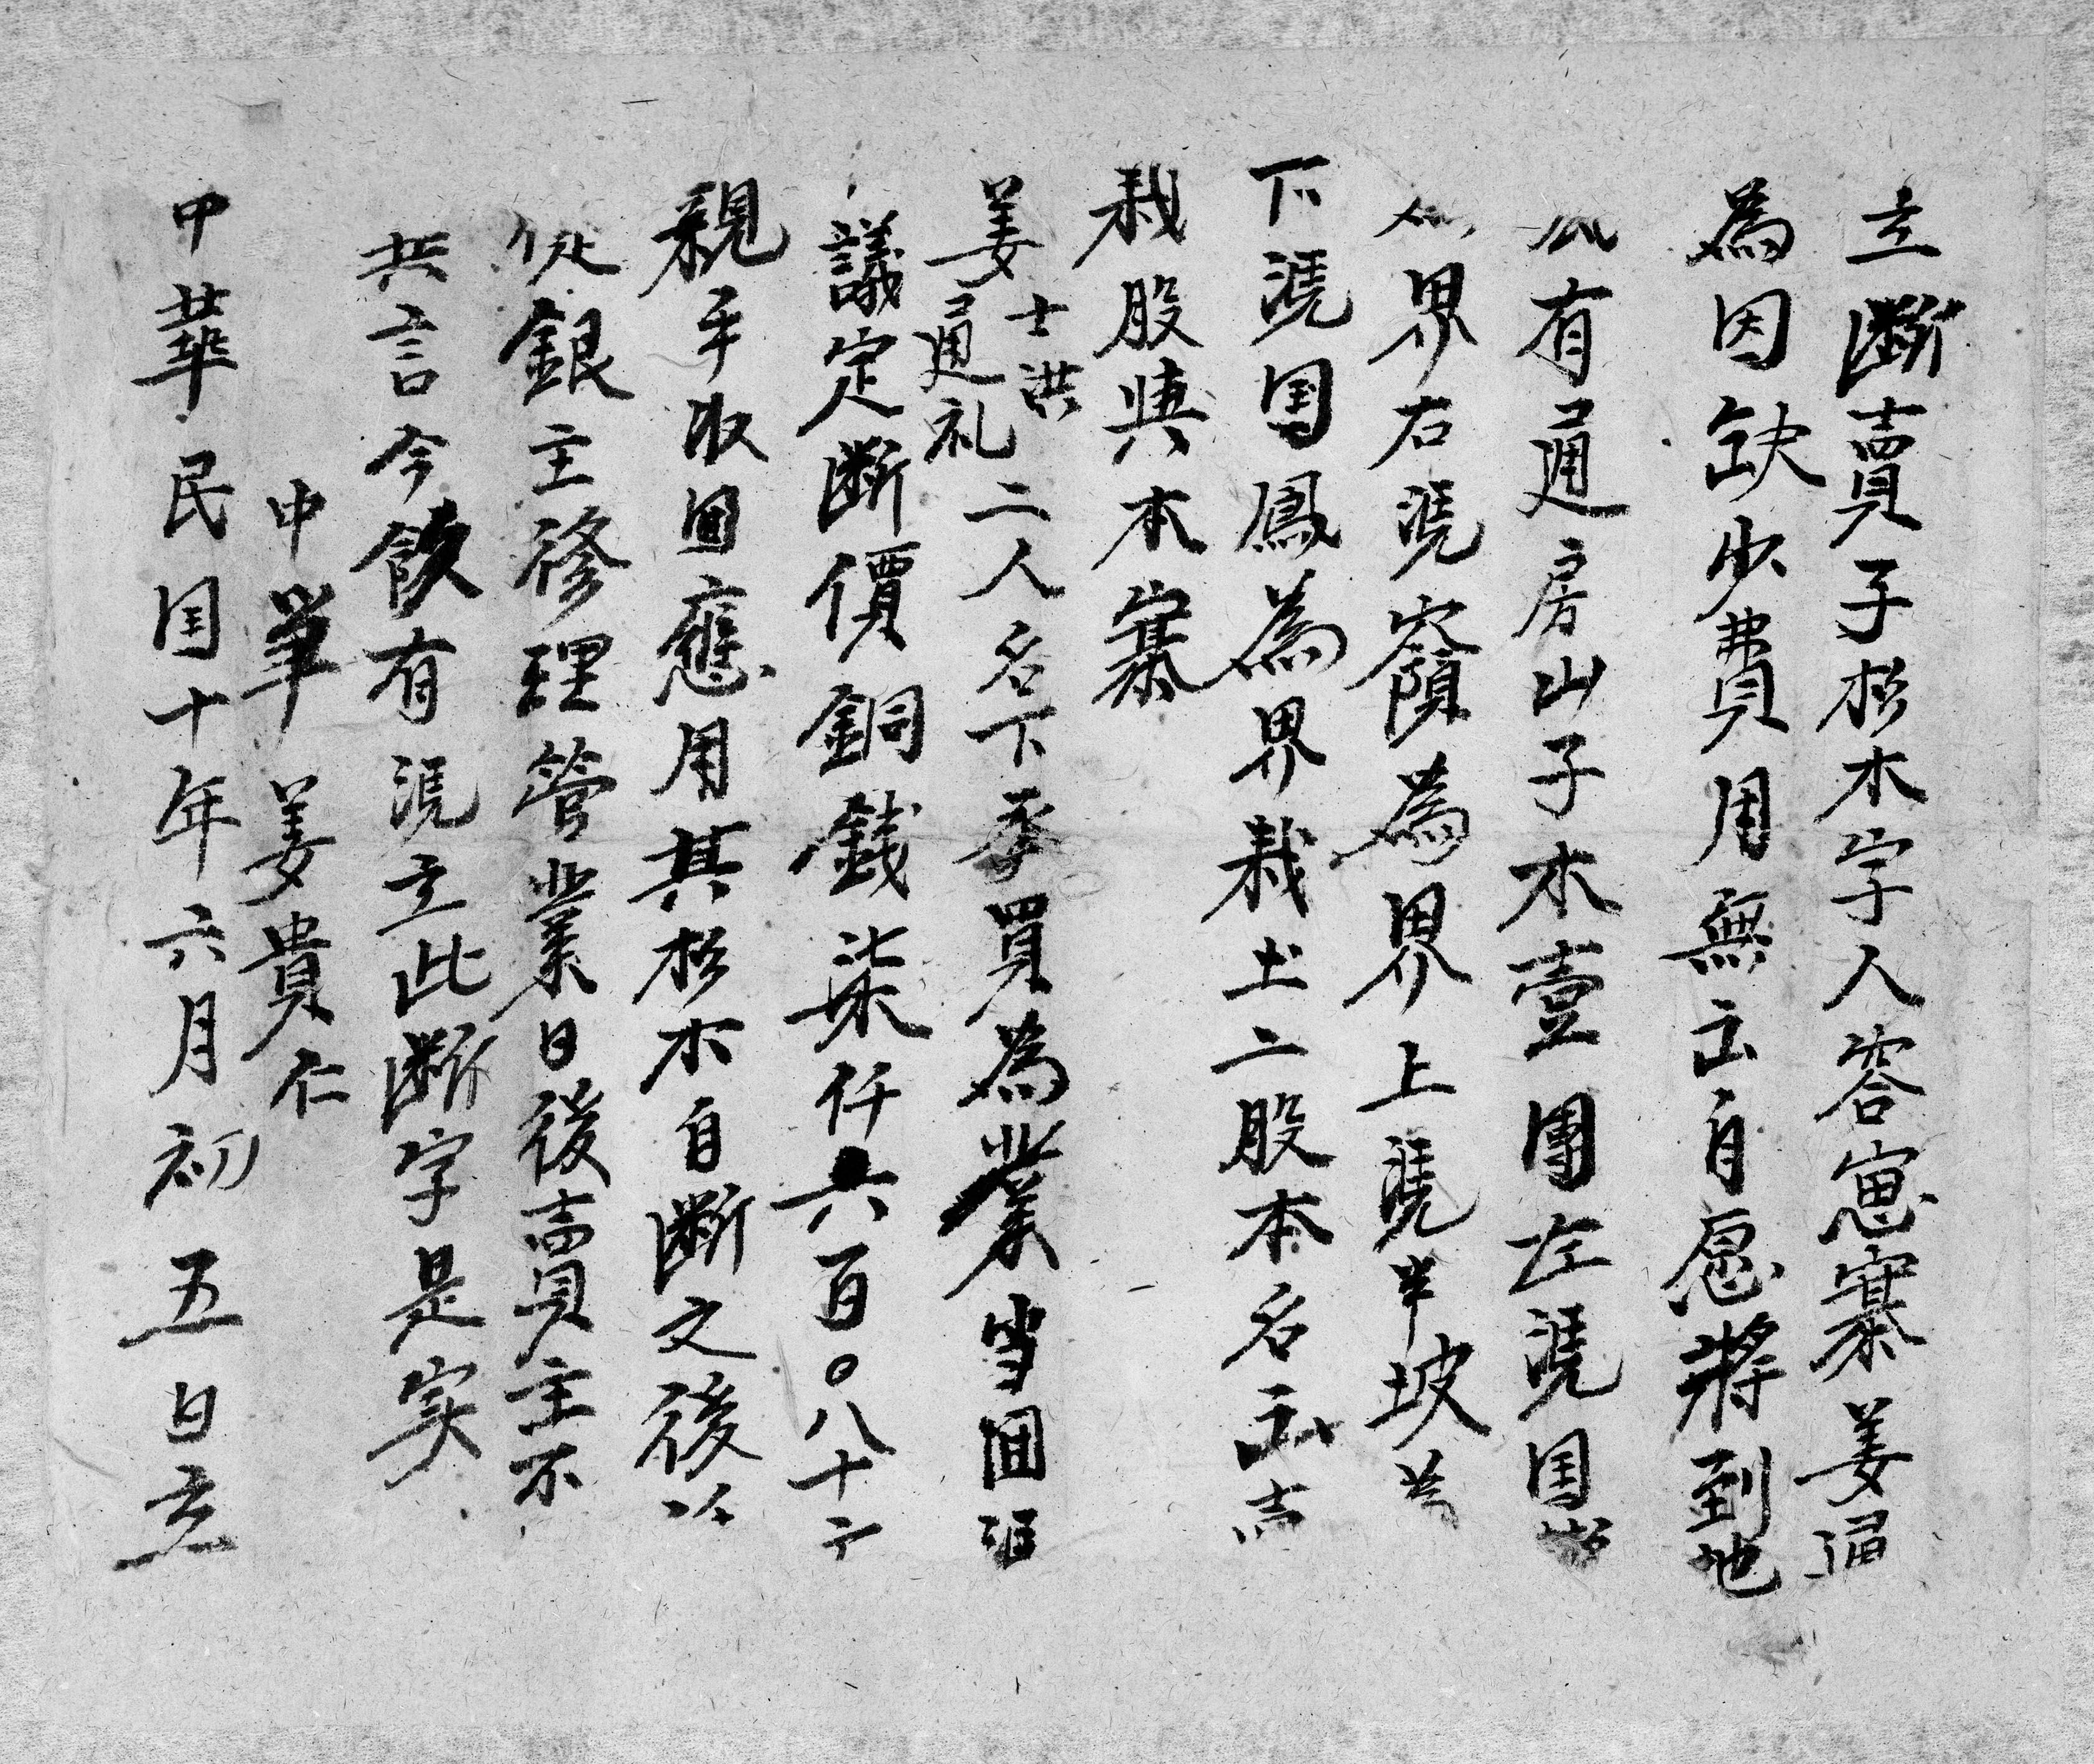 立斷賣子杉木字人容寃寨姜通
為因缺少費用無出自愿將到地
有通房山子木壹團左凴囯
界右凴嶺為界上凴半坡為
下凴囯鳳為界栽土二股本名
栽股與本寨
姜士洪通礼二人名下承買為業当面
議定斷價銅錢柒仟六百〇八十
親手收回應用其杉木自斷之後
從銀主修理管業日後賣主不
言今欲有凴立此斷字是实
中筆 姜貴仁
中華民囯十年六月初五日立